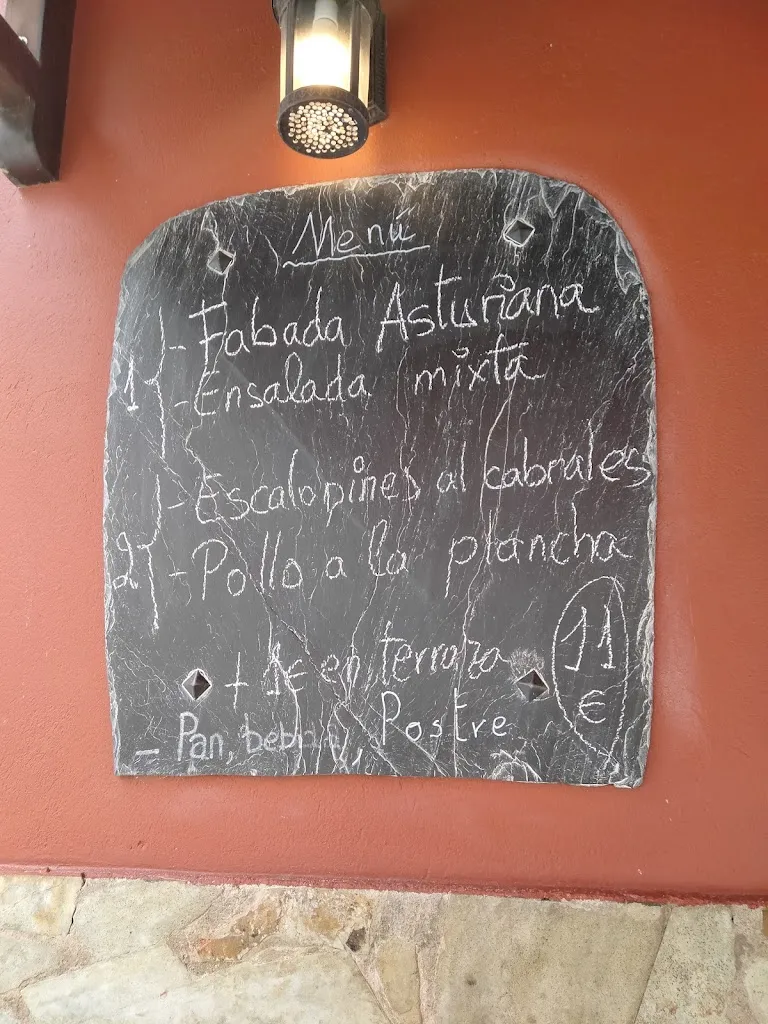 Menú
1 { - Fabada Asturiana
- Ensalada mixta
2 { - Escalopines al cabrales
- Pollo a la plancha
+ 1€ en terraza
11 €
- Pan, , Postre